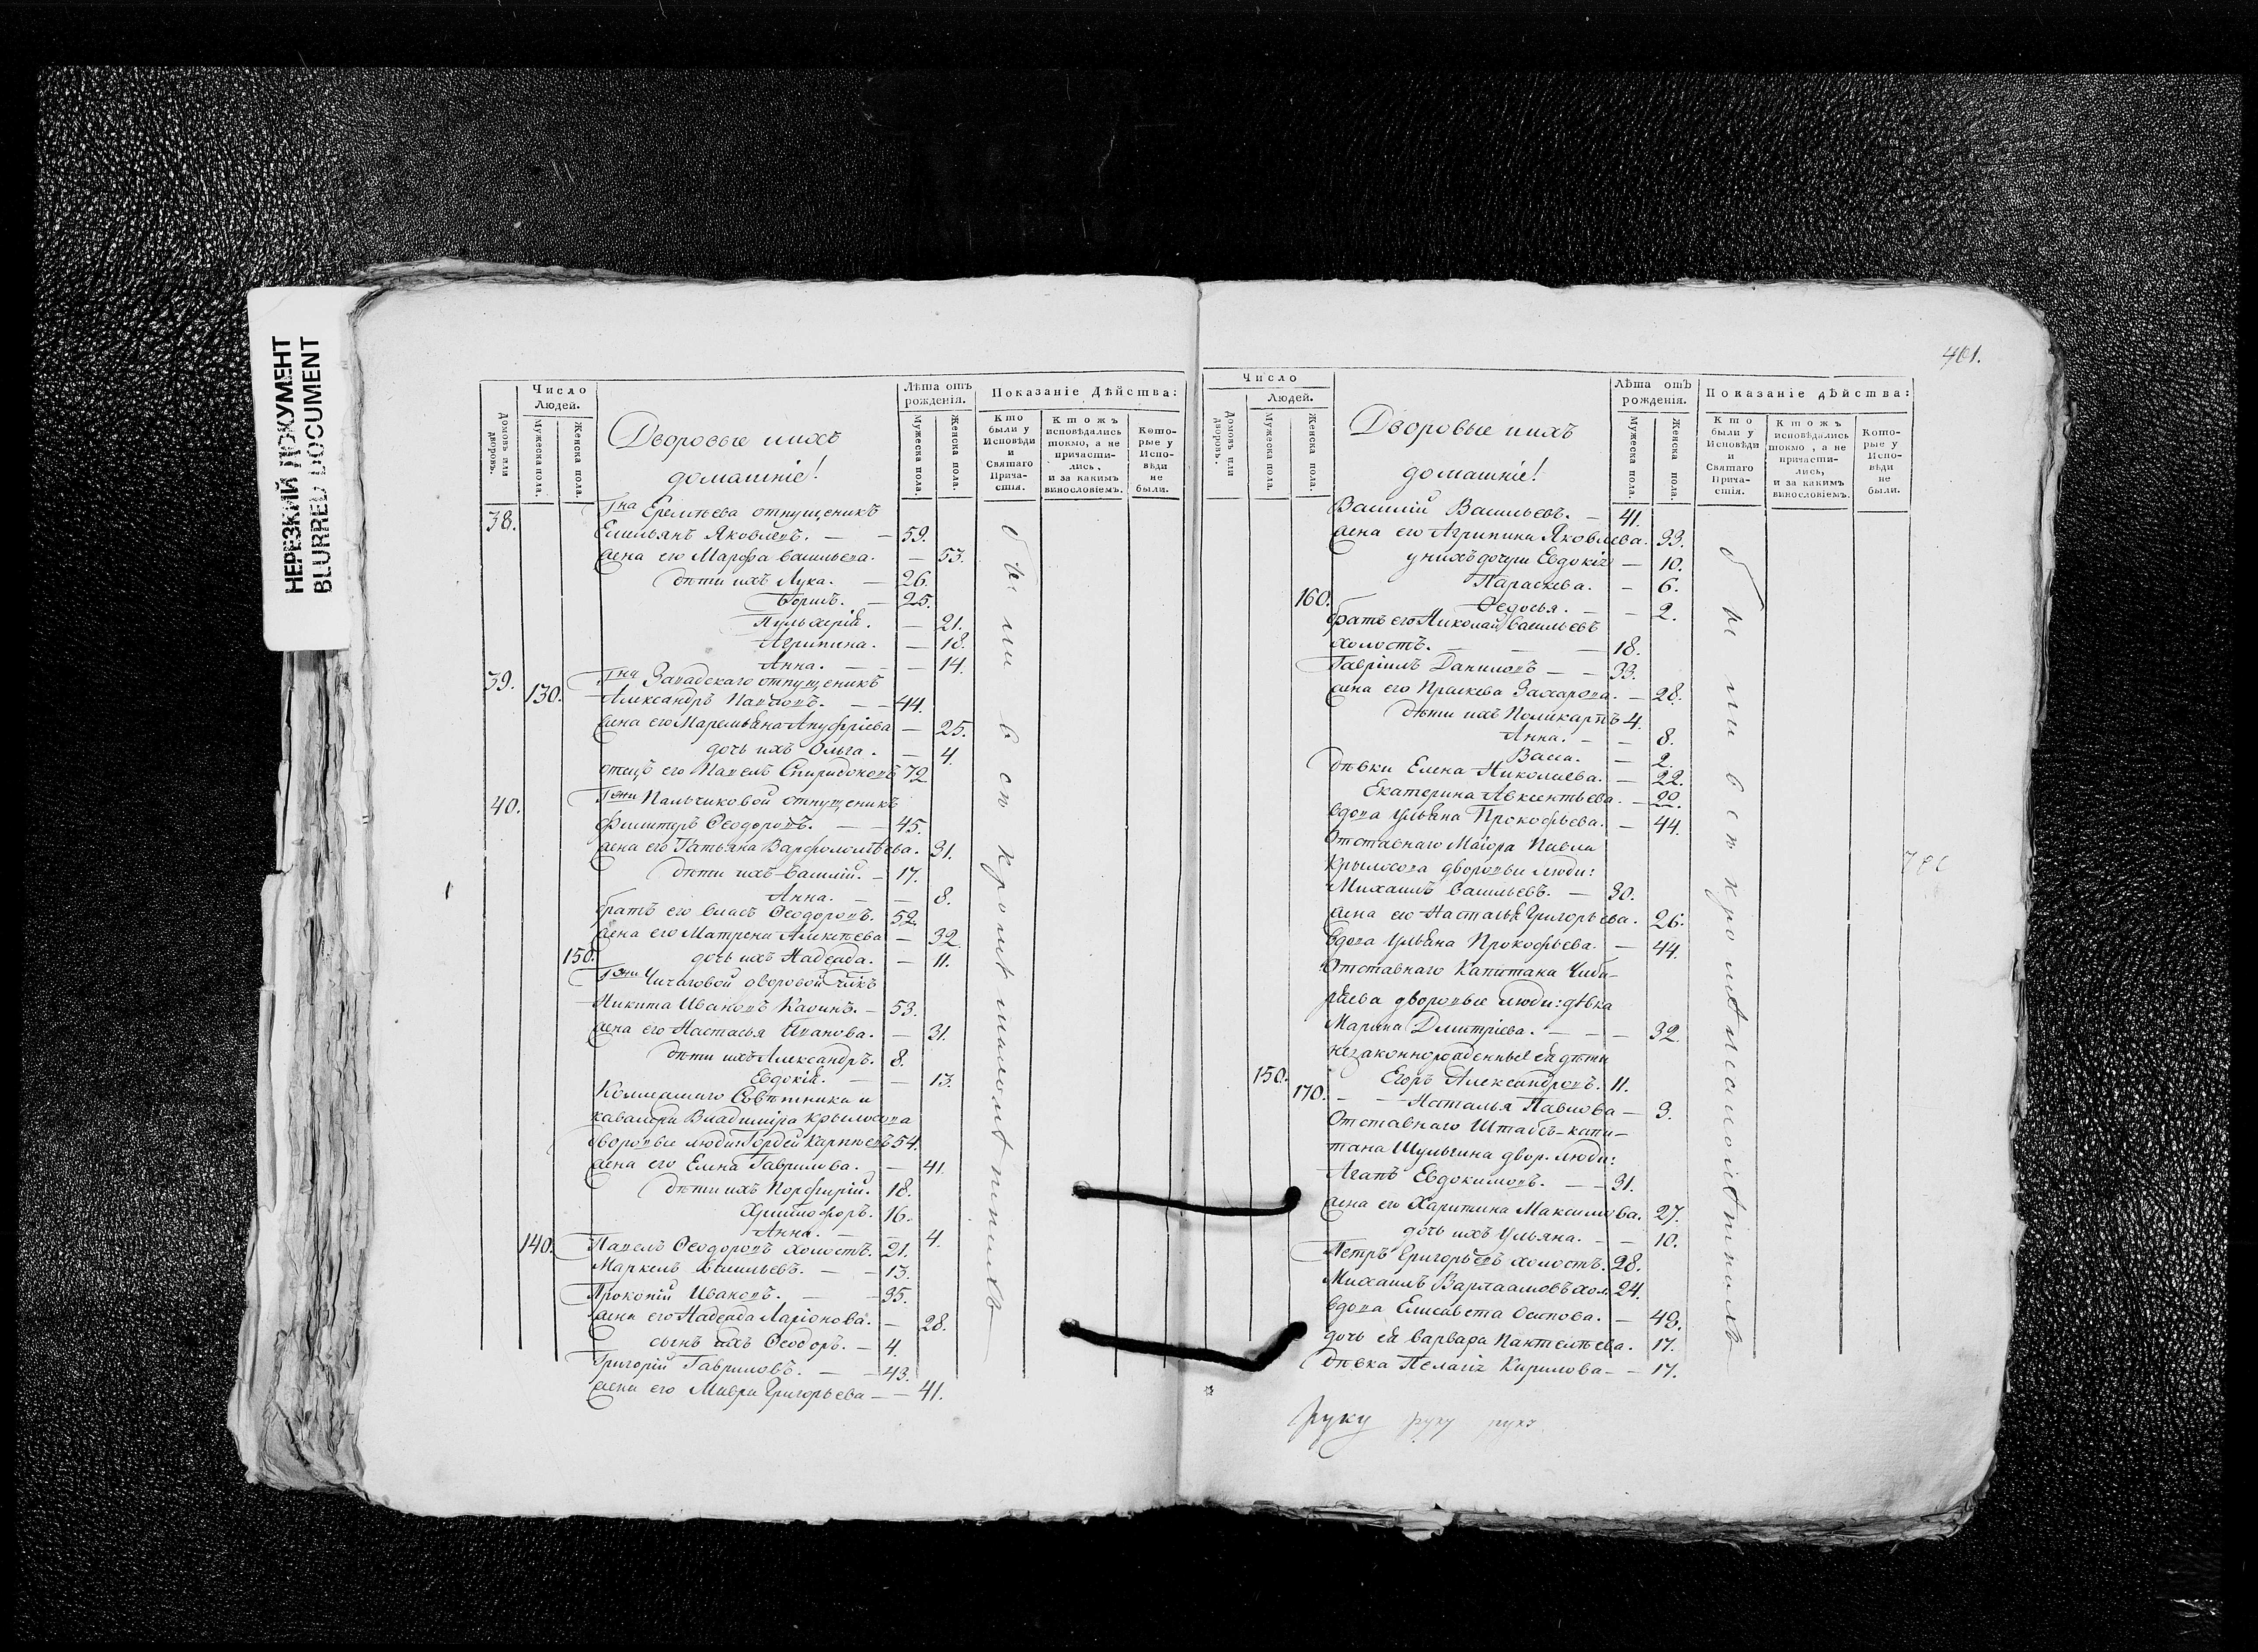 НЕРЕЗКИЙ ДОКУМЕНТ
BLURRED DOCUMENT
Число Людей.
Домовъ или дворовъ.
Мужеска пола.
Женска пола.
Дворовые и ихъ
домашніе!
Лѣта отъ рожденія.
Мужеска пола.
Женска пола.
Показаніе Дѣйства:
Кто были у Исповѣди и Святаго Прича-стія.
Ктожъ исповѣдались токмо, а не причасти-лись, и за какимъ винословіемъ.
Кото-рые у Испо-вѣди не были.
38. Гна отпущеникъ
Емильянъ Яковлевъ. — — 59.
Жена его Марѳа Васильева. — 53.
дѣти ихъ Лука. — 26.
Борисъ. — 25.
Пульхерія. — 21.
Агрипина. — 18.
Анна. — — — 14.
39. Гна Западскаго отпущеникъ
130. Александръ Павловъ. — — 44.
Жена его Маремьяна Ануфріева — 25.
дочь ихъ Ольга. — 4.
отецъ его Павелъ Спиридоновъ 72
40. Гжи Пальчиковой отпущеникъ
Филиппъ Ѳеодоровъ. — — 45.
Жена его Татьяна Варфоломѣева. 31.
дѣти ихъ Василій. — 17.
Анна. — — 8.
братъ его Власъ Ѳеодоровъ. 52.
Жена его Матрена Алексѣева — 32.
150. дочь ихъ Надежда. — 11.
Гжи Чичаговой дворовой чкъ
Никита Ивановъ — 53.
Жена его Настасья Иванова. — 31.
дѣти ихъ Александръ. 8.
Евдокія. — — 13.
Коллежскаго Совѣтника и
кавалера Владиміра Крылосова
дворовые люди: Гордей Карповъ 54.
Жена его Елена Гаврилова. — 41.
дѣти ихъ Порфирій. 18.
Христофоръ. 16.
Анна. — — 4.
140. Павелъ Ѳеодоровъ холостъ. 21.
Маркелъ Васильевъ. — — 13.
Прокопій Ивановъ. — — 35.
Жена его Надежда Ларіонова. — 28.
сынъ ихъ Ѳеодоръ. — 4.
Григорій Гавриловъ. — — 43.
Жена его Мавра Григорьева — — 41.
были всѣ кромѣ малолѣтнихъ
401.
Число
Людей.
Домовъ или дворовъ.
Мужеска пола.
Женска пола.
Дворовые и ихъ
домашніе!
Лѣта отъ рожденія.
Мужеска пола.
Женска пола.
Показаніе дѣйства:
Кто были у Исповѣди и Святаго Прича-стія.
Ктожъ исповѣдались токмо, а не причасти-лись, и за какимъ винословіемъ.
Кото-рые у Испо-вѣди не были.
Василій Васильевъ. — 41.
Жена его Агрипина Яковлева. 33.
у нихъ дочери Евдокія — 10.
Параскева. — 6.
160. Ѳедосья. — — 2.
братъ его Николай Васильевъ
холостъ. — — 18.
Гавріилъ Даниловъ — — 33.
Жена его Праскева Захарова. — 28.
дѣти ихъ Поликарпъ 4.
Анна. — — 8.
Васса. — 2.
дѣвки Елена Николаева. — 22.
Екатерина Авксентьева. — 20.
вдова Ульяна Прокофьева. — 44.
Отставнаго Маіора Павла
Крылосова дворовые люди:
Михаилъ Васильевъ. — 30.
Жена его Наталья Григорьева. 26.
Вдова Ульяна Прокофьева. — 44.
Отставнаго Капитана
дворовые люди: дѣвка
Марина Дмитріева. — — — 32.
незаконнорожденные ея дѣти
150. Егоръ Александровъ. 11.
170. — — Наталья Павлова — 9.
Отставнаго Штабсъ-капи-
тана Шульгина двор. люди:
Агапъ Евдокимовъ. — — 31.
Жена его Харитина Максимова. 27.
дочь ихъ Ульяна. — — 10.
Петръ Григорьевъ холостъ. 28.
Михаилъ Варлаамовъ хол. 24.
вдова Елисавета Осипова. — 48.
дочь ея Варвара Пантелѣева. 17.
дѣвка Пелагія Кирилова — — 17.
были всѣ кромѣ малолѣтнихъ
руку руку руку